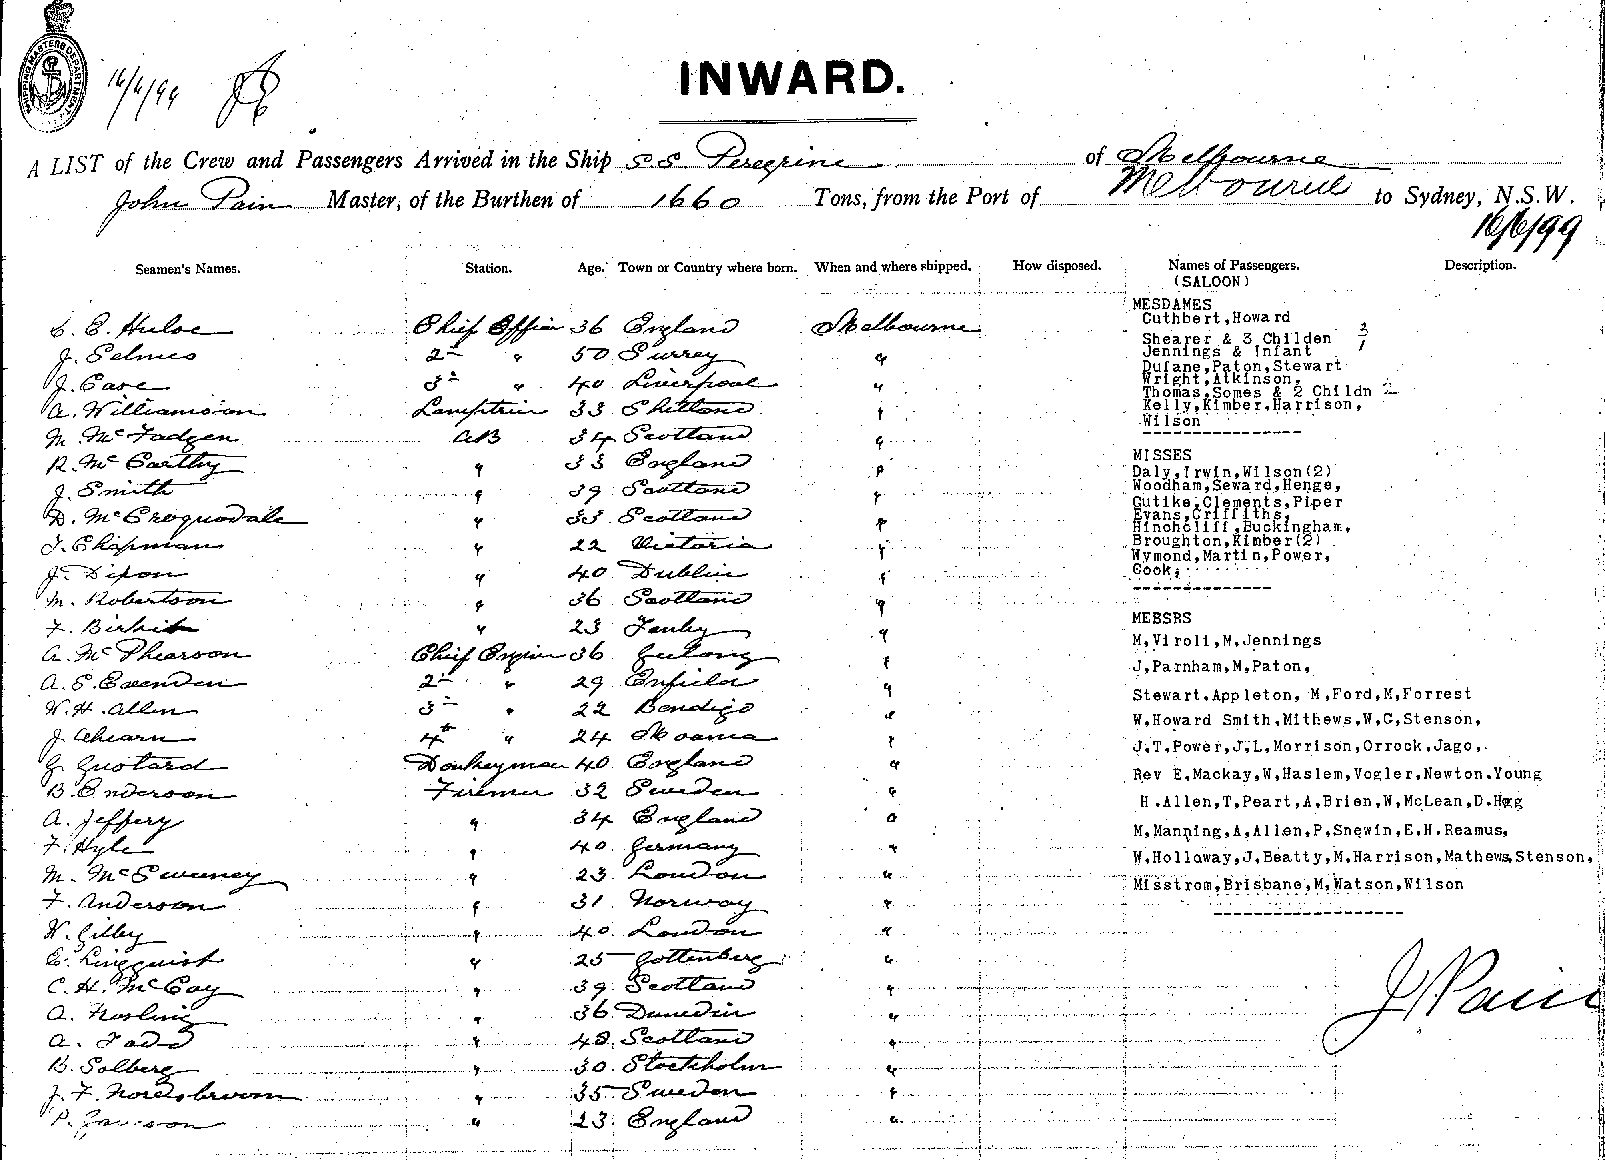 SHIPPING MASTERS DEPARTMENT
16/6/99
INWARD.
A LIST of the Crew and Passengers Arrived in the Ship S.S. Peregrine of Melbourne
John Pain Master, of the Burthen of 1660 Tons, from the Port of Melbourne to Sydney, N.S.W.
16/6/99
Seamen's Names. Station. Age. Town or Country where born. When and where shipped. How disposed. Names of Passengers. Description.
(SALOON)
C. E. Hulse Chief Officer 36 England Melbourne
J. Selmes 2nd " 50 Surrey "
J. Case 3rd " 40 Liverpool "
A. Williamson Lamptrim 33 Shetland "
M. McFadgen AB 34 Scotland "
R. McCarthy " 33 England "
J. Smith " 39 Scotland "
D. McCroquodale " 33 Scotland "
T. Chapman " 22 Victoria "
J. Dixon " 40 Dublin "
M. Robertson " 36 Scotland "
F. " 23 "
A. McPhearson Chief Engineer 36 Geelong "
A. S. 2nd " 29 Enfield "
W. H. Allen 3rd " 22 Bendigo "
J. Ahearn 4th " 24 Moama "
G. Gustard Donkeyman 40 England "
B. Enderson Firemen 32 Sweden "
A. Jeffery " 34 England "
F. Hyle " 40 Germany "
M. McSweeney " 23 London "
F. Anderson " 31 Norway "
W. Gilby " 40 London "
E. Lingquist " 25 Gottenberg "
C. H. McCoy " 39 Scotland "
A. Nosling " 36 Dunedin "
A. Todd " 42 Scotland "
B. Solberg " 30 Stockholm "
J. F. Nordsbroom " 35 Sweden "
P. " 23 England "
MESDAMES
Cuthbert,Howard
Shearer & 3 Childen 3
Jennings & Infant 1
Dufane,Paton,Stewart
Wright,Atkinson,
Thomas,Somes & 2 Childn 2
Kelly,Kimber,Harrison,
Wilson
MISSES
Daly,Irwin,Wilson(2)
Woodham,Seward,Henge,
Gutike,Clements,Piper
Evans,Griffiths,
Hinchcliff,Buckingham,
Broughton,Kimber(2)
Wymond,Martin,Power,
Cook,
MESSRS
M,Viroli,M,Jennings
J,Parnham,M,Paton,
Stewart,Appleton, M,Ford,M,Forrest
W,Howard Smith,Mithews,W,G,Stenson,
J.T.Power,J.L,Morrison,Orrock,Jago,
Rev E,Mackay,W,Haslem,Vogler,Newton.Young
H.Allen,T,Peart,A,Brien,W,McLean,D.Hogg
M,Manning,A,Allen,P,Snewin,E.H.Reamus,
W.Holloway,J,Beatty,M.Harrison,Mathews,Stenson,
Misstrom,Brisbane,M,Watson,Wilson
J Pain